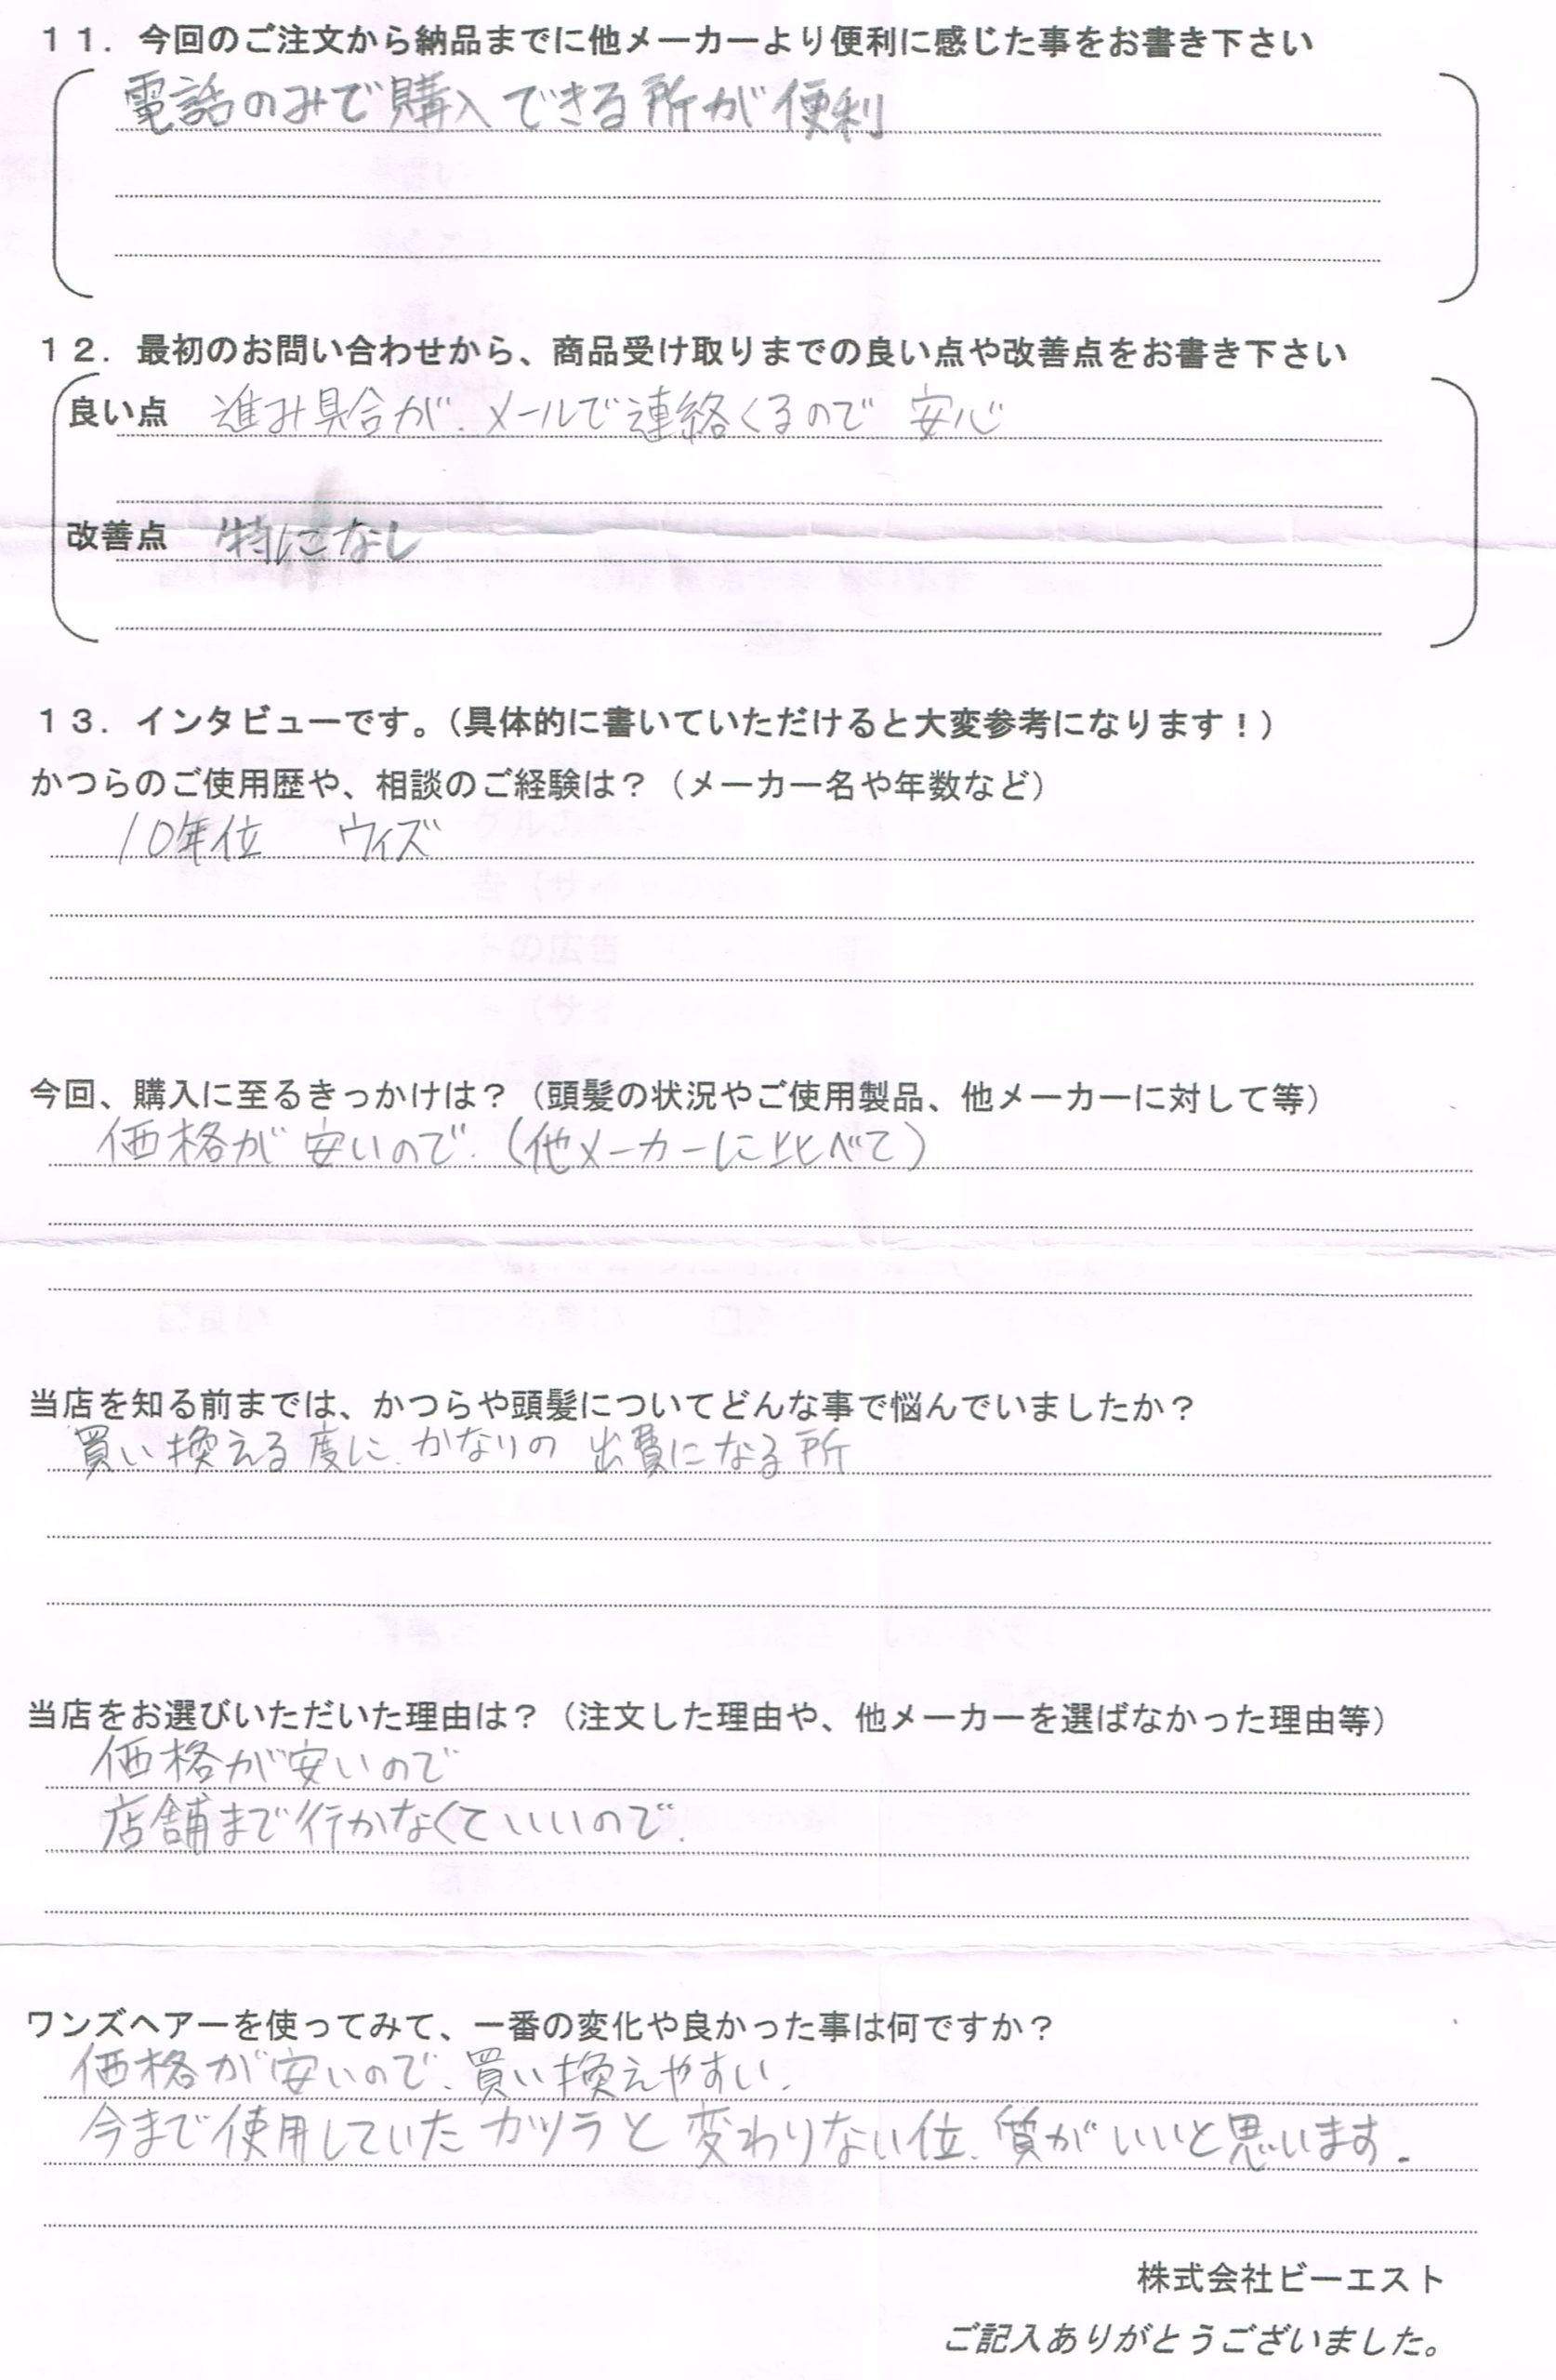 １１．今回のご注文から納品までに他メーカーより便利に感じた事をお書き下さい
電話のみで購入できる所が便利
１２．最初のお問い合わせから、商品受け取りまでの良い点や改善点をお書き下さい
良い点 進み具合が、メールで連絡くるので 安心
改善点 特になし
１３．インタビューです。（具体的に書いていただけると大変参考になります！）
かつらのご使用歴や、相談のご経験は？（メーカー名や年数など）
10年位 ウィズ
今回、購入に至るきっかけは？（頭髪の状況やご使用製品、他メーカーに対して等）
価格が安いので.（他メーカーに比べて）
当店を知る前までは、かつらや頭髪についてどんな事で悩んでいましたか？
買い換える度に、かなりの出費になる所
当店をお選びいただいた理由は？（注文した理由や、他メーカーを選ばなかった理由等）
価格が安いので
店舗まで行かなくていいので.
ワンズヘアーを使ってみて、一番の変化や良かった事は何ですか？
価格が安いので、買い換えやすい.
今まで使用していたカツラと変わりない位、質がいいと思います.
株式会社ビーエスト
ご記入ありがとうございました。